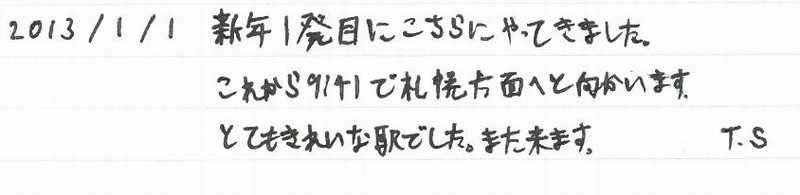 2013/1/1 新年1発目にこちらにやってきました。
これから9141で札幌方面へと向かいます。
とてもきれいな駅でした。また来ます。 T.S